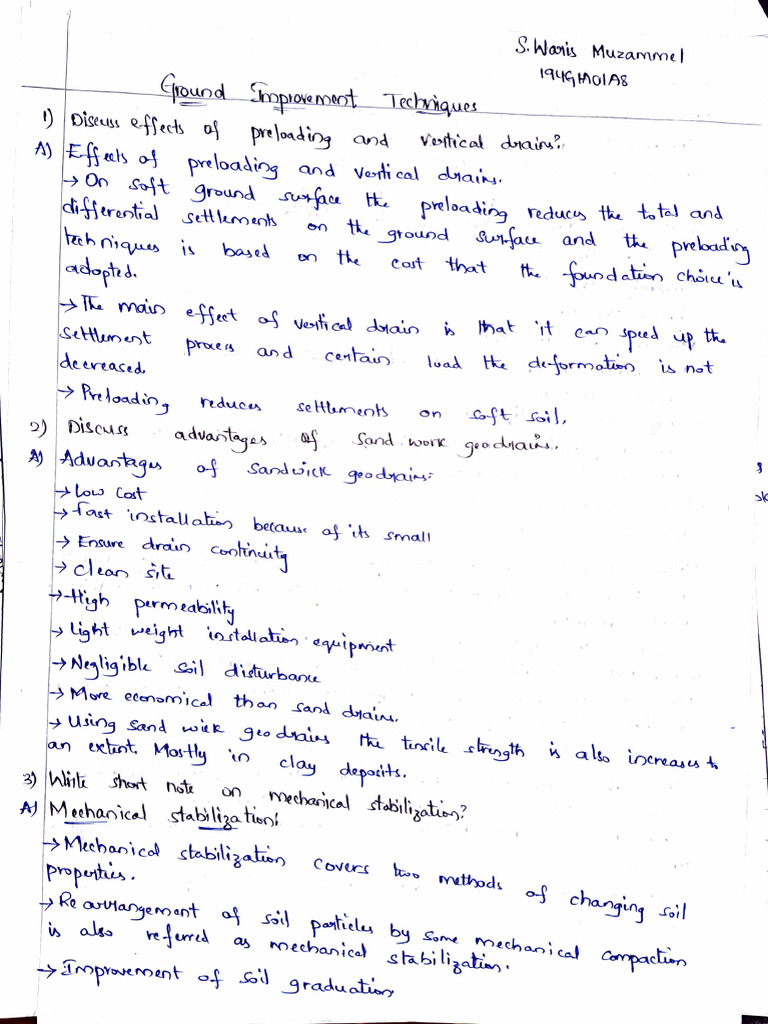 S. Waris Muzammel
194GHA01A8
Ground Improvement Techniques
1) Discuss effects of preloading and vertical drains?
A) Effects of preloading and vertical drains.
→ On soft ground surface the preloading reduces the total and
differential settlements on the ground surface and the preloading
techniques is based on the cost that the foundation choice is
adopted.
→ The main effect of vertical drain is that it can speed up the
settlement process and certain load the deformation is not
decreased.
→ Preloading reduces settlements on soft soil.
2) Discuss advantages of sand work geodrains.
A) Advantages of sandwick geodrains:
→ Low cost
→ fast installation because of its small
→ Ensure drain continuity
→ clean site
→ High permeability
→ light weight installation equipment
→ Negligible soil disturbance
→ More economical than sand drains.
→ Using sand wick geodrains the tensile strength is also increases to
an extent. Mostly in clay deposits.
3) Write short note on mechanical stabilization?
A) Mechanical stabilization:
→ Mechanical stabilization covers two methods of changing soil
properties.
→ Re arrangement of soil particles by some mechanical compaction
is also referred as mechanical stabilization.
→ Improvement of soil graduation